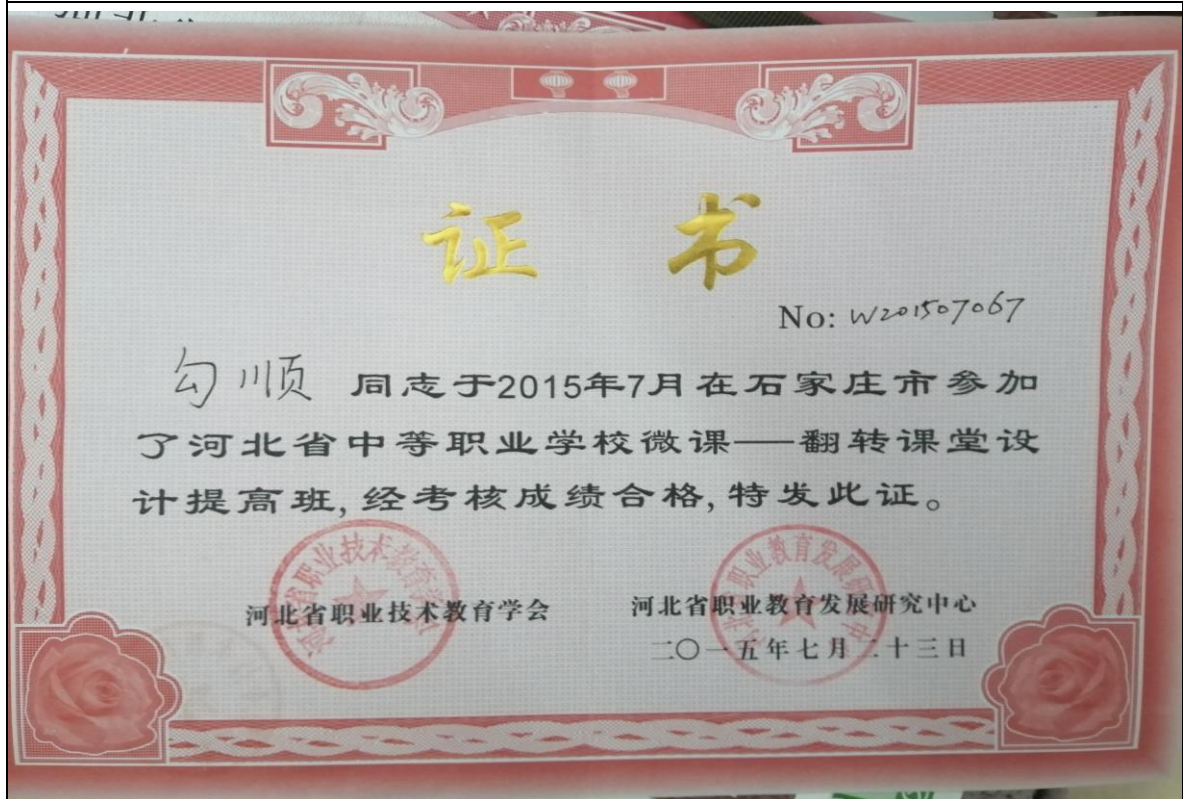 证 书
No: W201507067
勾顺 同志于2015年7月在石家庄市参加
了河北省中等职业学校微课——翻转课堂设
计提高班,经考核成绩合格,特发此证。
河北省职业技术教育学会
河北省职业教育发展研究中心
二〇一五年七月二十三日